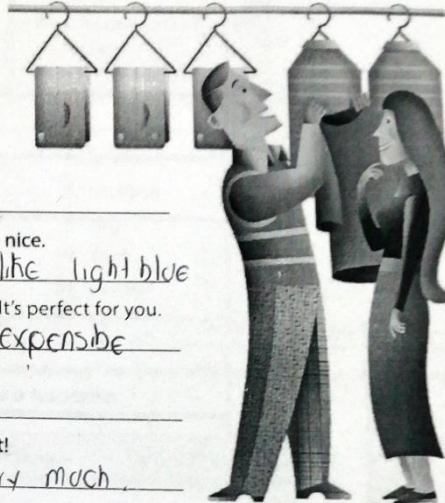 nice.
like light blue
It's perfect for you.
expensibe
t!
ry much.